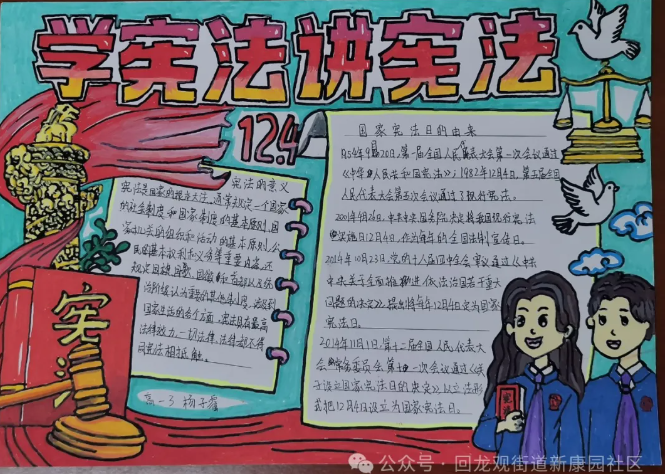 学宪法讲宪法
12.4
宪法的意义
宪法是国家的根本大法,通常规定一个国家
的社会制度和国家制度的基本原则,国
家机关的组织和活动的基本原则,公
民的基本权利和义务等重要内容,还
规定国旗、国歌、国徽和首都以及统
治阶级认为重要的其他制度,涉及到
国家生活的各个方面,宪法具有最高
法律效力,一切法律、法规都不得
同宪法相抵触。
高一3 杨子
国家宪法日的由来
1954年9月20日,第一届全国人民代表大会第一次会议通过
《中华人民共和国宪法》;1982年12月4日,第五届全国
人民代表大会第五次会议通过了现行宪法。
2001年4月26日,中共中央国务院决定将我国现行宪法
实施日12月4日,作为每年的全国法制宣传日。
2014年10月23日,党的十八届四中全会审议通过《中共
中央关于全面推进依法治国若干重大
问题的决定》,提出将每年12月4日定为国家
宪法日。
2014年11月1日,第十二届全国人民代表大
会常务委员会第十一次会议通过《关
于设立国家宪法日的决定》,以立法形
式把12月4日设立为国家宪法日。
宪
法
宪法
公众号·回龙观街道新康园社区